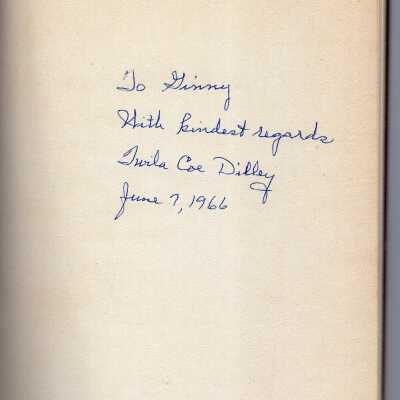 To Ginny
With kindest regards
Twila Coe Dilley
June 7, 1966